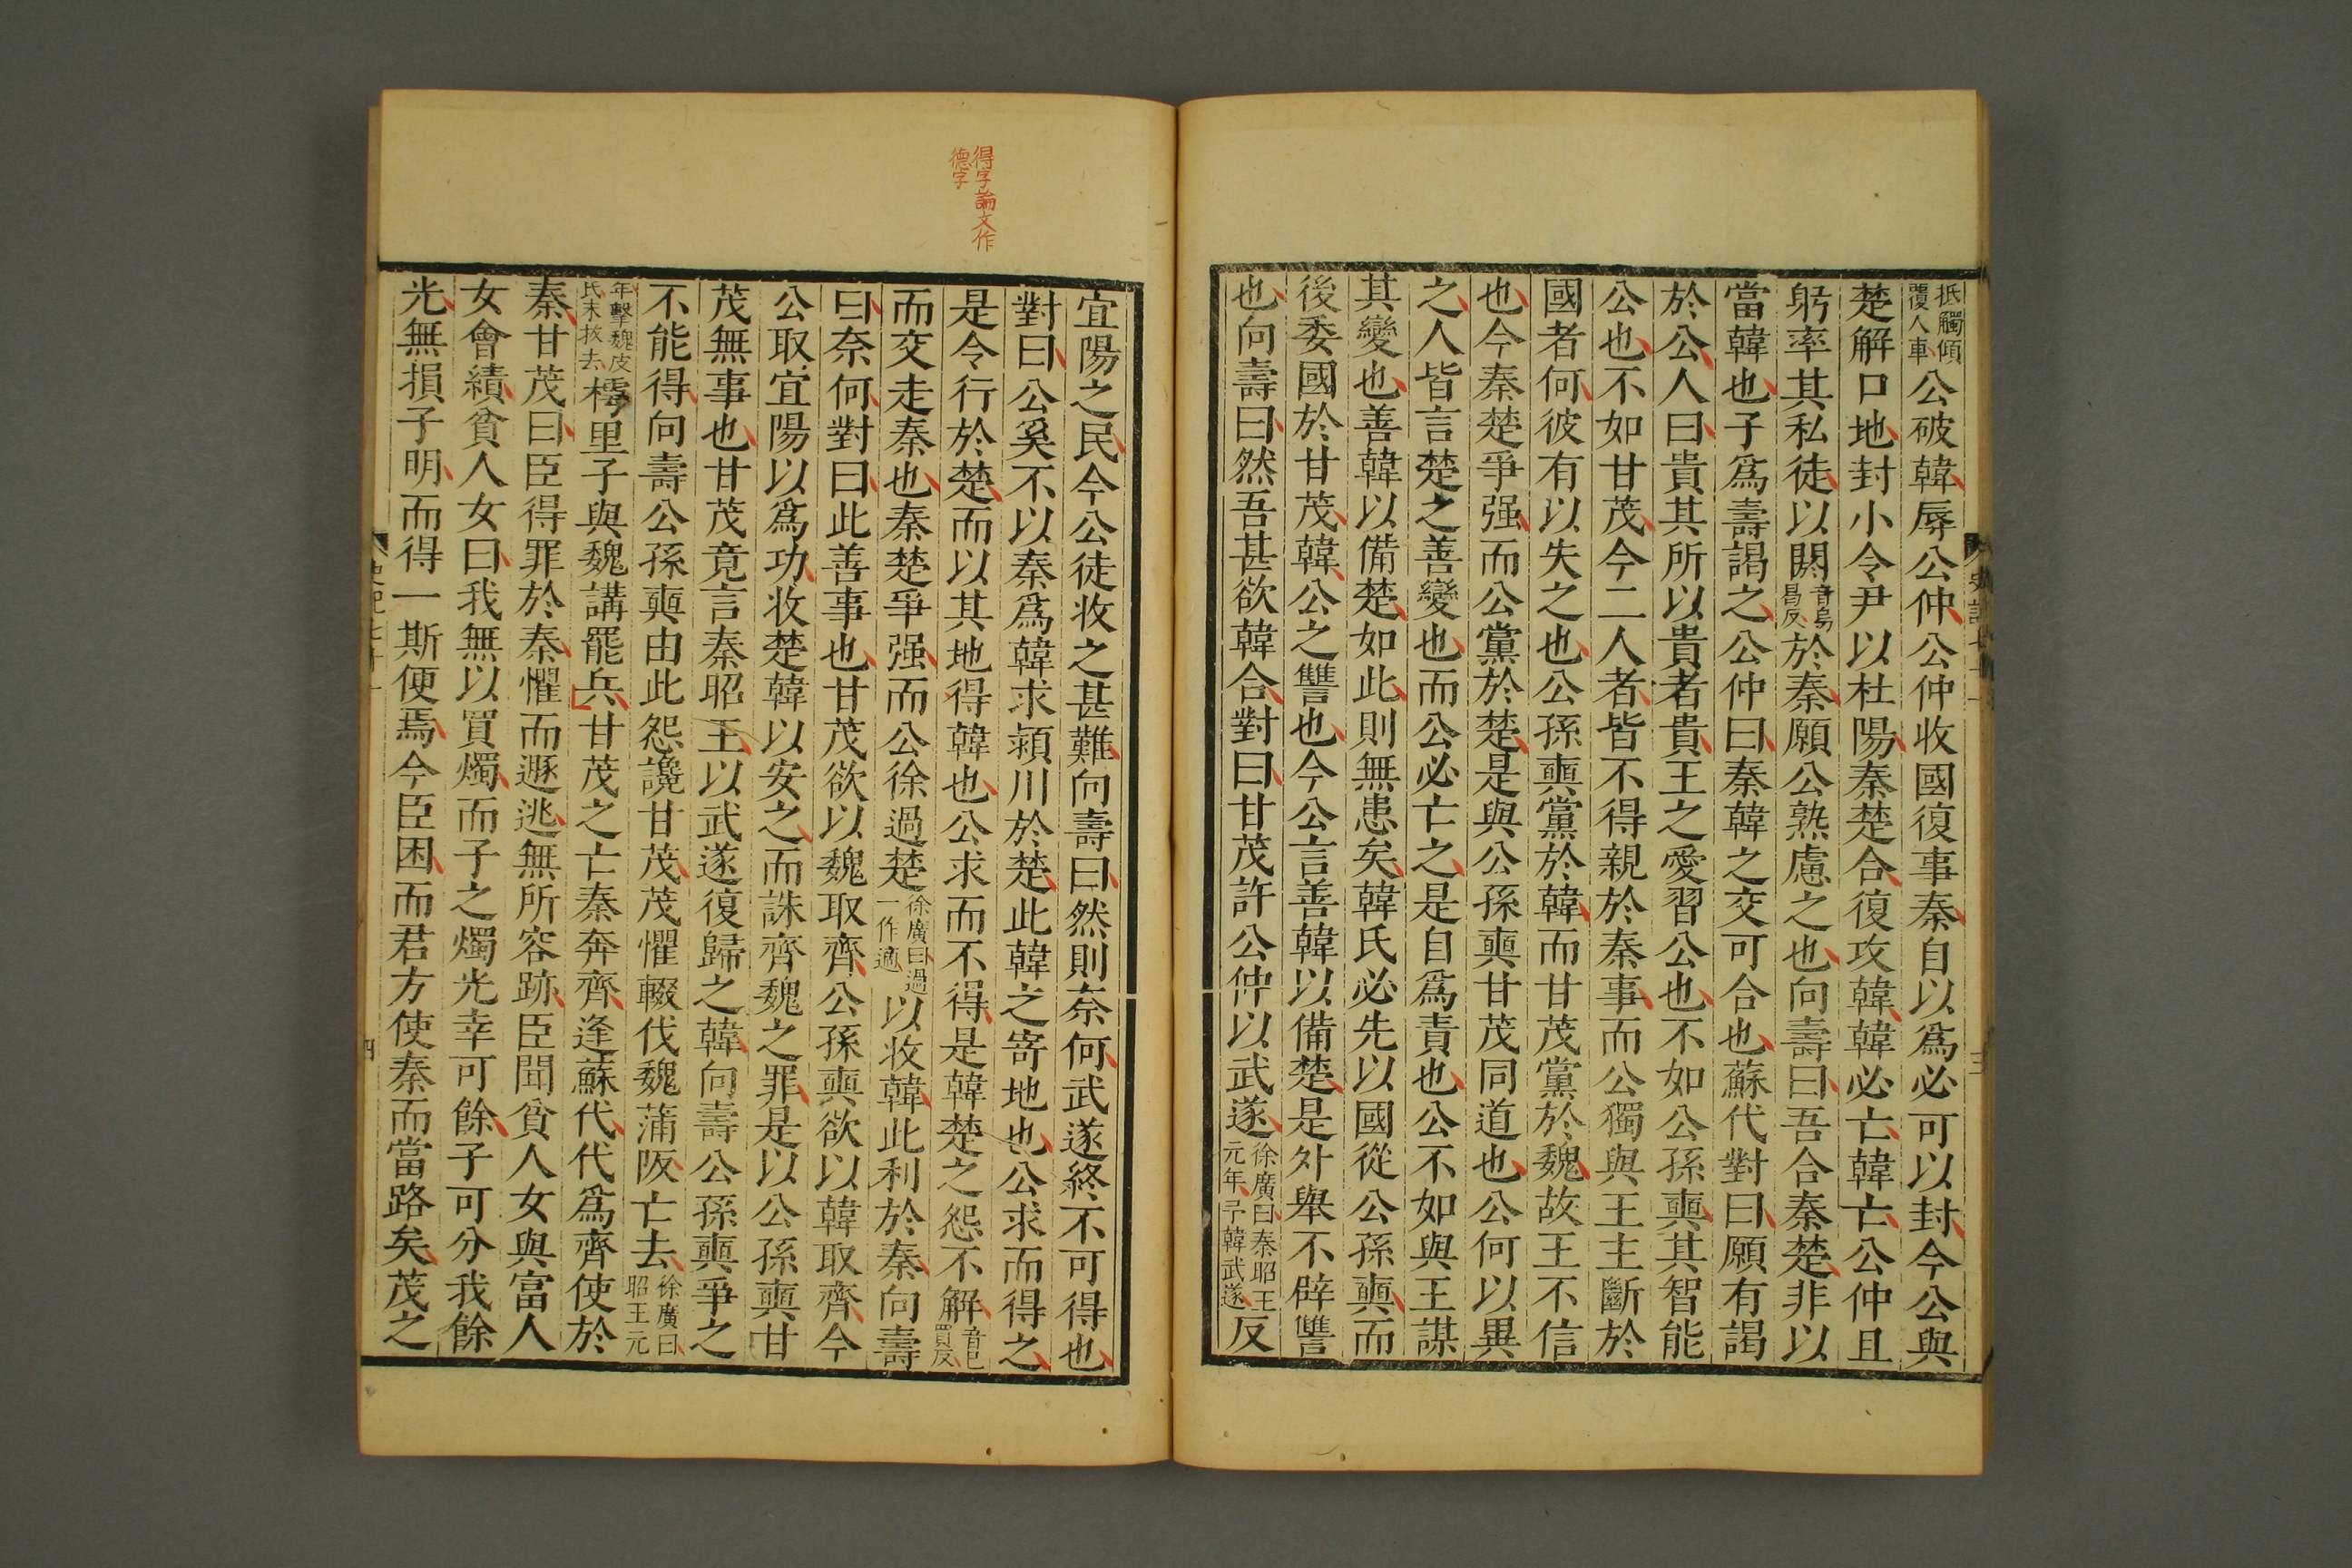 抵觸傾覆人車公破韓辱公仲公仲收國復事秦自以爲必可以封今公與
楚解口地封小令尹以杜陽秦楚合復攻韓韓必亡韓亡公仲且
躬率其私徒以閼音烏曷反於秦願公熟慮之也向壽曰吾合秦楚非以
當韓也子爲壽謁之公仲曰秦韓之交可合也蘇代對曰願有謁
於公人曰貴其所以貴者貴王之愛習公也不如公孫奭其智能
公也不如甘茂今二人者皆不得親於秦事而公獨與王主斷於
國者何彼有以失之也公孫奭黨於韓而甘茂黨於魏故王不信
也今秦楚爭强而公黨於楚是與公孫奭甘茂同道也公何以異
之人皆言楚之善變也而公必亡之是自爲責也公不如與王謀
其變也善韓以備楚如此則無患矣韓氏必先以國從公孫奭而
後委國於甘茂韓公之讐也今公言善韓以備楚是外舉不辟讐
也向壽曰然吾甚欲韓合對曰甘茂許公仲以武遂徐廣曰秦昭王元年予韓武遂反
得字論文作
德字
宜陽之民今公徒收之甚難向壽曰然則奈何武遂終不可得也
對曰公奚不以秦爲韓求潁川於楚此韓之寄地也公求而得之
是令行於楚而以其地得韓也公求而不得是韓楚之怨不解音已買反
而交走秦也秦楚爭强而公徐過楚徐廣曰過一作適以收韓此利於秦向壽
曰奈何對曰此善事也甘茂欲以魏取齊公孫奭欲以韓取齊今
公取宜陽以爲功收楚韓以安之而誅齊魏之罪是以公孫奭甘
茂無事也甘茂竟言秦昭王以武遂復歸之韓向壽公孫奭爭之
不能得向壽公孫奭由此怨讒甘茂茂懼輟伐魏蒲阪亡去徐廣曰昭王元
年擊魏皮氏未拔去樗里子與魏講罷兵甘茂之亡秦奔齊逢蘇代代爲齊使於
秦甘茂曰臣得罪於秦懼而遯逃無所容跡臣聞貧人女與富人
女會績貧人女曰我無以買燭而子之燭光幸可餘子可分我餘
光無損子明而得一斯便焉今臣困而君方使秦而當路矣茂之
四